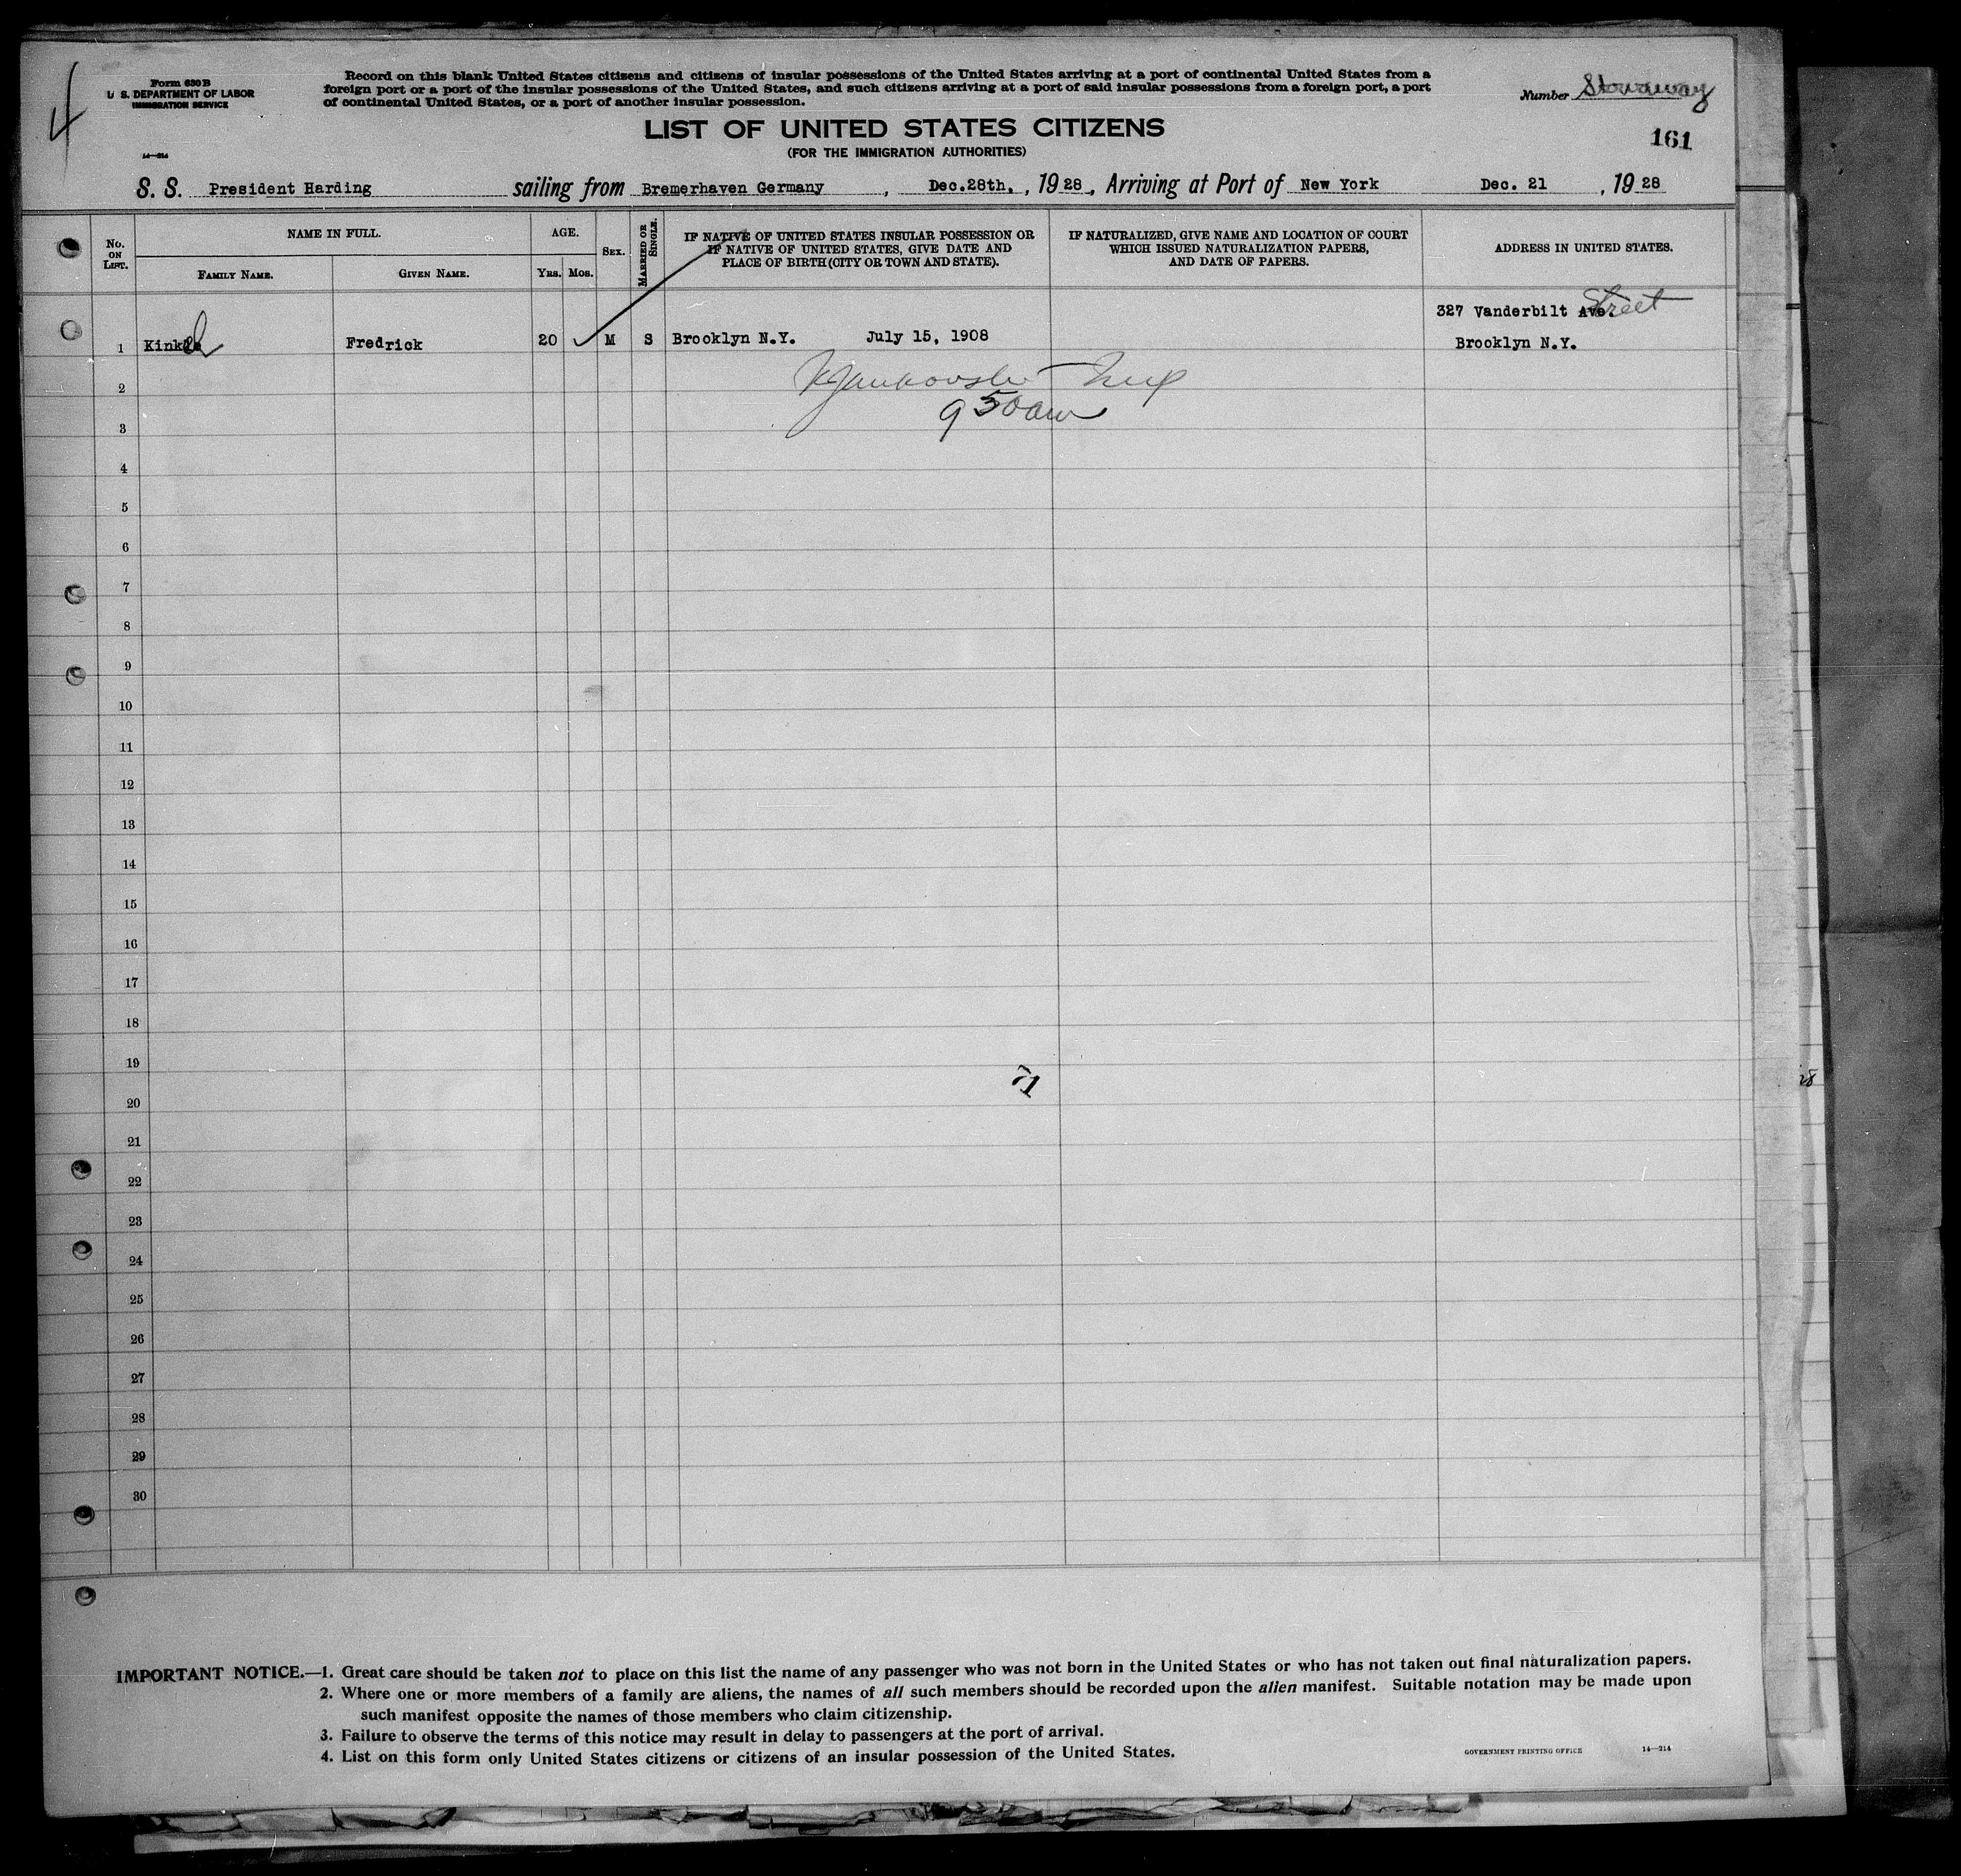 4
Form 630 B
U. S. DEPARTMENT OF LABOR
IMMIGRATION SERVICE
14—214
Record on this blank United States citizens and citizens of insular possessions of the United States arriving at a port of continental United States from a
foreign port or a port of the insular possessions of the United States, and such citizens arriving at a port of said insular possessions from a foreign port, a port
of continental United States, or a port of another insular possession.
Number Stowaway
161
LIST OF UNITED STATES CITIZENS
(FOR THE IMMIGRATION AUTHORITIES)
S. S. President Harding sailing from Bremerhaven Germany, Dec.28th., 1928, Arriving at Port of New York Dec. 21, 1928
No. ON LIST.
NAME IN FULL.
FAMILY NAME.
GIVEN NAME.
AGE.
YRS.
MOS.
SEX.
MARRIED OR SINGLE.
IF NATIVE OF UNITED STATES INSULAR POSSESSION OR
IF NATIVE OF UNITED STATES, GIVE DATE AND
PLACE OF BIRTH (CITY OR TOWN AND STATE).
IF NATURALIZED, GIVE NAME AND LOCATION OF COURT
WHICH ISSUED NATURALIZATION PAPERS,
AND DATE OF PAPERS.
ADDRESS IN UNITED STATES.
327 Vanderbilt Ave. Street
1 Kinkel Fredrick 20 M S Brooklyn N.Y. July 15, 1908 Brooklyn N.Y.
2
9 50 am
3
4
5
6
7
8
9
10
11
12
13
14
15
16
17
18
19
71
20
21
22
23
24
25
26
27
28
29
30
IMPORTANT NOTICE.—1. Great care should be taken not to place on this list the name of any passenger who was not born in the United States or who has not taken out final naturalization papers.
2. Where one or more members of a family are aliens, the names of all such members should be recorded upon the alien manifest. Suitable notation may be made upon
such manifest opposite the names of those members who claim citizenship.
3. Failure to observe the terms of this notice may result in delay to passengers at the port of arrival.
4. List on this form only United States citizens or citizens of an insular possession of the United States.
GOVERNMENT PRINTING OFFICE 14—214